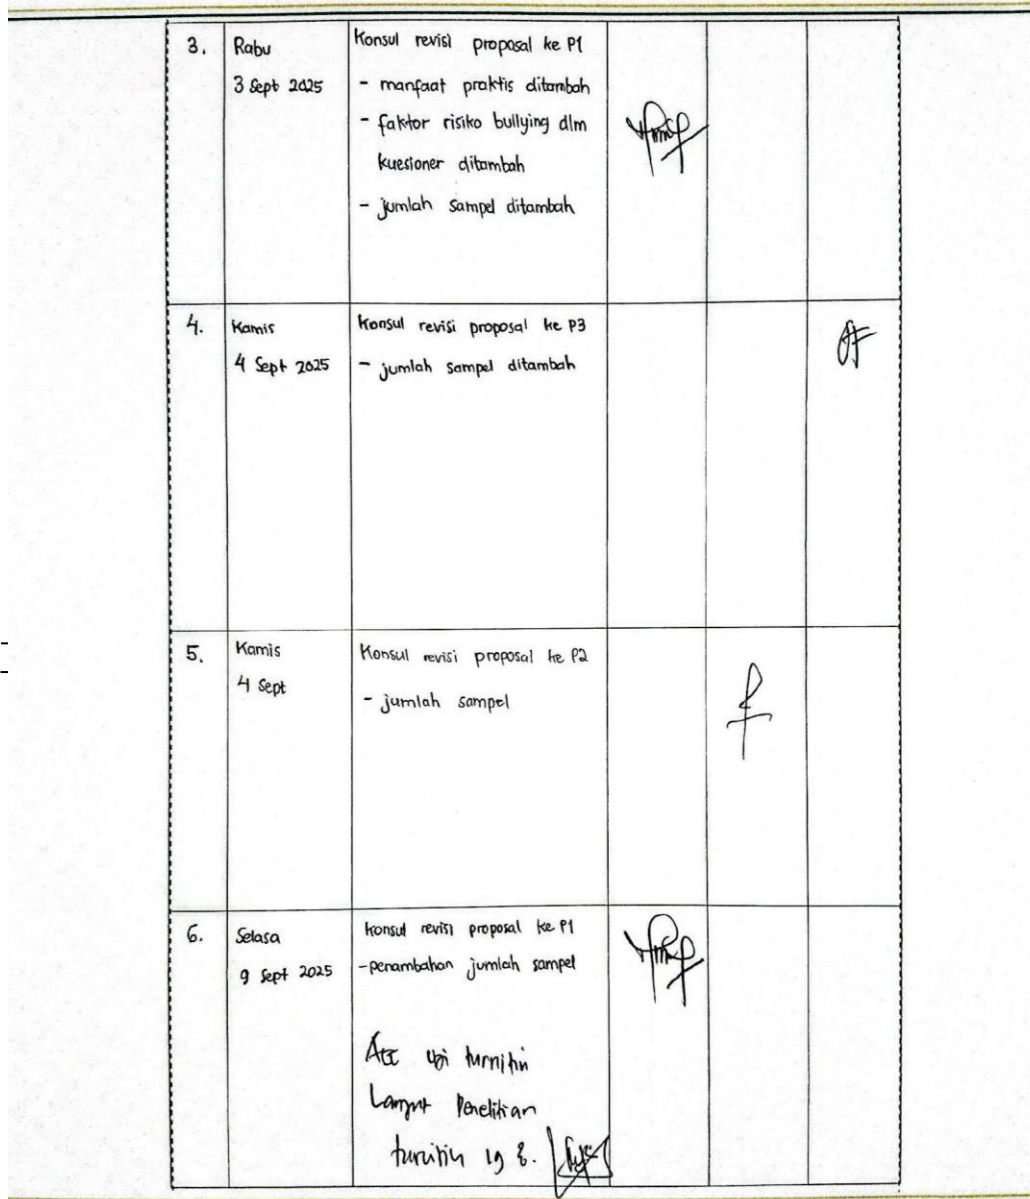 3.
Rabu
3 Sept 2025
Konsul revisi proposal ke P1
- manfaat praktis ditambah
- faktor risiko bullying dlm
kuesioner ditambah
- jumlah sampel ditambah
4.
Kamis
4 Sept 2025
Konsul revisi proposal ke P3
- jumlah sampel ditambah
5.
Kamis
4 Sept
Konsul revisi proposal ke P2
- jumlah sampel
6.
Selasa
9 Sept 2025
Konsul revisi proposal ke P1
-penambahan jumlah sampel
Acc uji turnitin
Lanjut Penelitian
turnitin 19